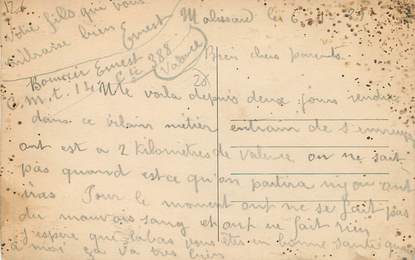 Malissard le 6
Bien chers parents
Me voila depuis deux jours rendu
dans ce vilain métier entrain de s'ennuyer
ont est a 2 kilomètres de Valence, on ne sait
pas quand est ce qu'on partira ni ou ont
iras Pour le moment ont ne se fait pas
du mauvais sang et ont ne fait rien
j'espère que labas vous êtes en bonne santé que
moi ça va très bien
votre fils qui vous
embrasse bien Ernest
Ernest
C.M.t. 14 Cie 388
Valence